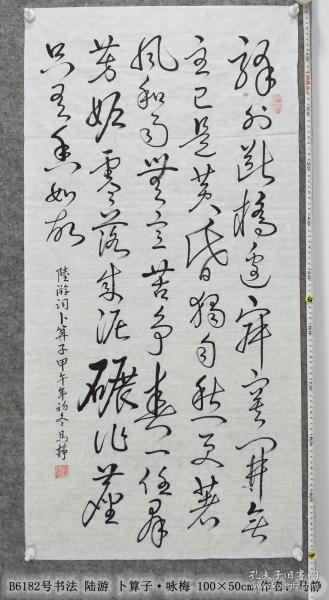 驛外斷橋邊寂寞開無
主已是黃昏獨自愁更著
風和雨無意苦爭春一任群
芳妒零落成泥碾作塵
只有香如故
陸游词卜算子甲午年初冬馬靜
B6182号书法 陆游 卜算子·咏梅 100×50cm 作者：马静
孔夫子旧书网